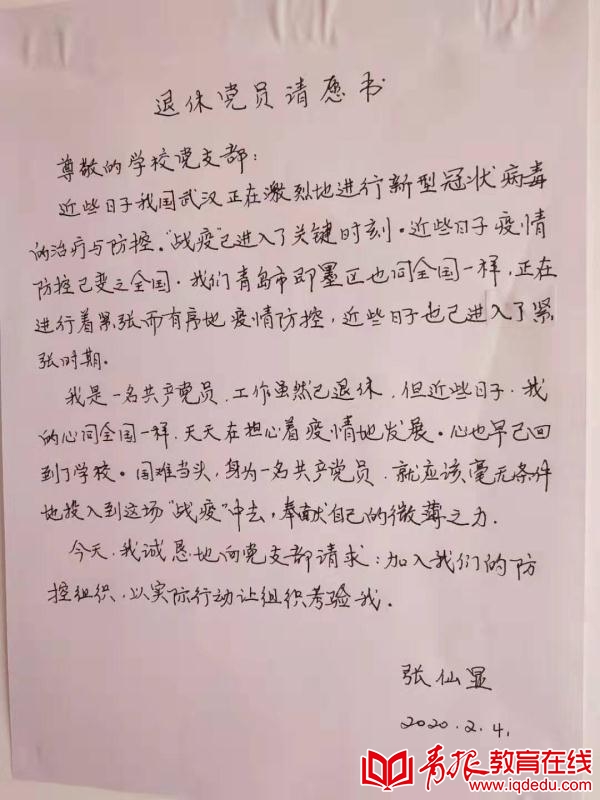 退休党员请愿书
尊敬的学校党支部：
近些日子我国武汉正在激烈地进行新型冠状病毒
的治疗与防控。“战疫”已进入了关键时刻。近些日子疫情
防控已变之全国。我们青岛市即墨区也同全国一样，正在
进行着紧张而有序地疫情防控，近些日子也已进入了紧
张时期。
我是一名共产党员，工作虽然已退休，但近些日子，我
的心同全国一样，天天在担心着疫情地发展。心也早已回
到了学校。国难当头，身为一名共产党员，就应该毫无条件
地投入到这场“战疫”中去，奉献自己的微薄之力。
今天，我诚恳地向党支部请求：加入我们的防
控组织，以实际行动让组织考验我。
张仙显
2020.2.4.
青报教育在线
www.iqdedu.com